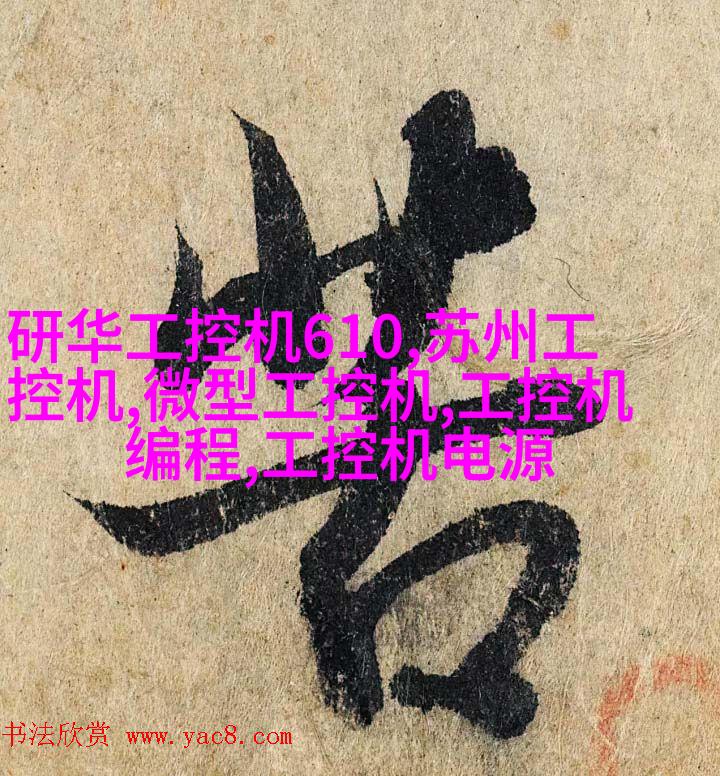 苦
研华工控机610,苏州工
控机,微型工控机,工控机
编程,工控机电源
书法欣赏 www.yac8.com